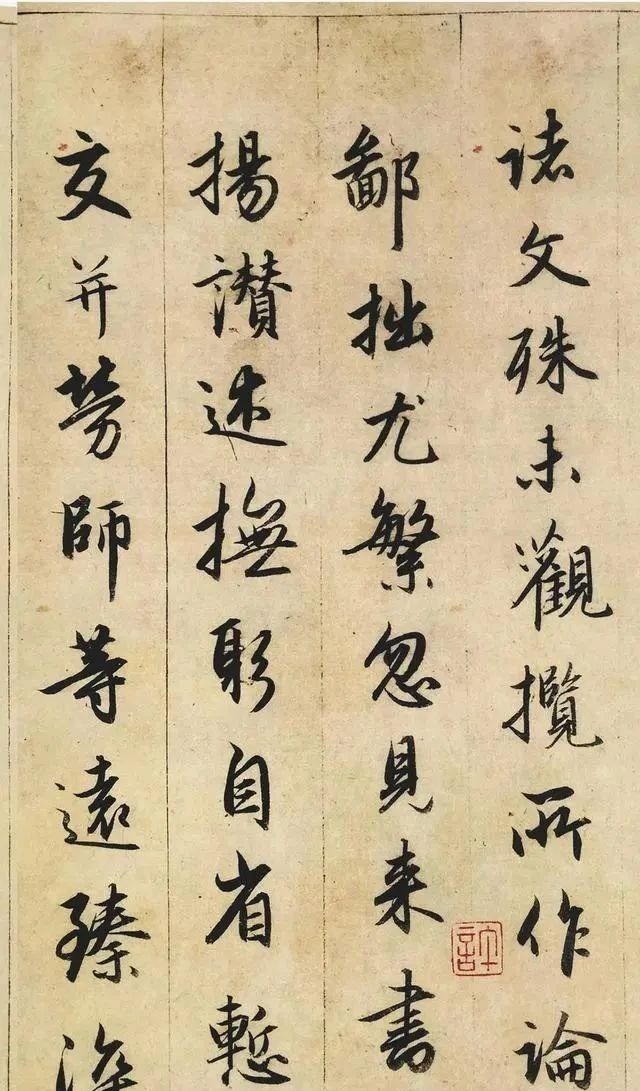 諸文殊未觀攬所作論
鄙拙尤繁忽見來書
揚讃述撫躬自省慙
交并勞師等遠臻深